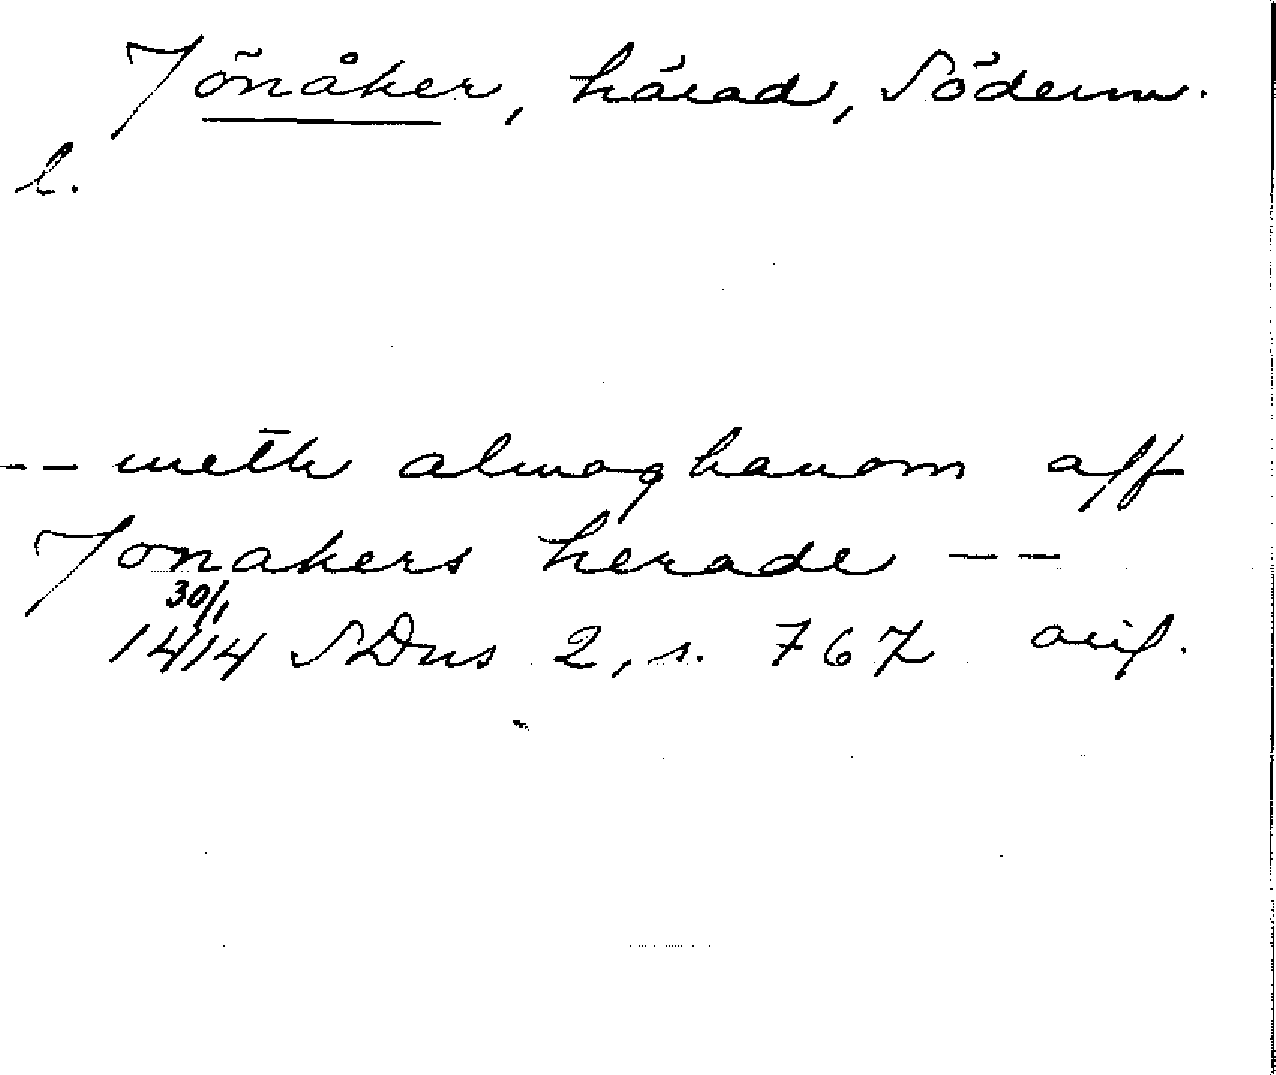 Jönåker, härad, Söderm.
l.
-- meth almoghanom aff
Jonakers herade --
30/1
1414 SDns 2, s. 767 avs.